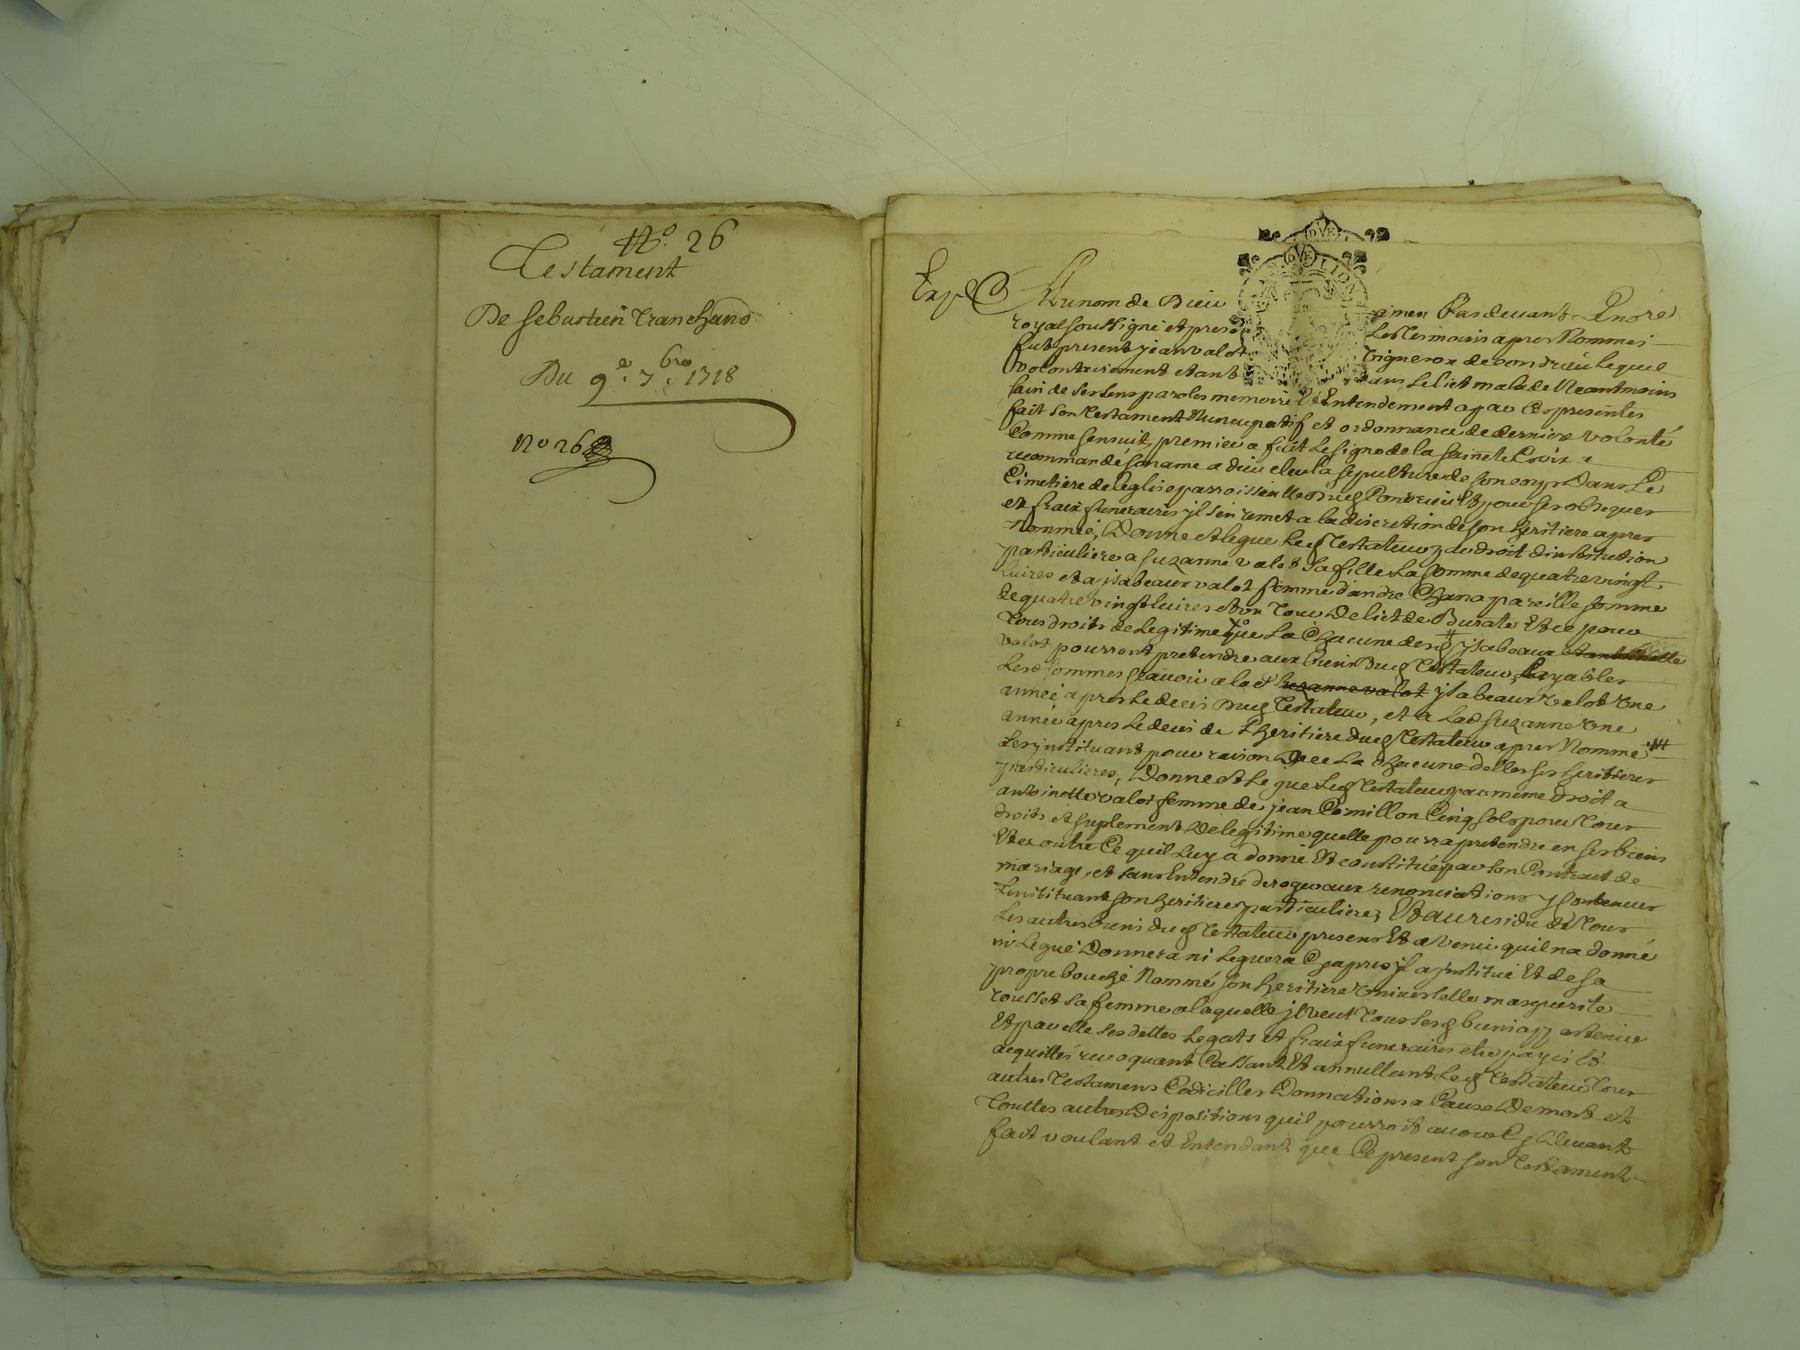 N.º 26
Testament
De Sebastien Tranchand
Du 9.e 7.bre 1718
No 26
Exp.
Au nom de Dieu amen Pardevant Nore
royal soussigné et presens Les Tesmoins apres Nommes
fut present jean valot vigneron de condrieu Lequel
volontairement etant dans Le lict malade Neantmoins
sain de ses sens paroles memoire & Entendement a par Ces presentes
fait son Testament Nuncupatif et ordonnance de derniere volonté
Comme sensuit, premier a fait Le signe de la sainte Croix
recommandé son ame a dieu eleu La sepulture de son corps Dans Le
Cimetiere de leglise parroissialle dud Condrieu Et pour ses obseques
et fraix funeraires jl sen remet a la discretion de son heritiere apres
Nommée, Donne et legue Led Testateur par droit dinstitution
particuliere a suzanne valot sa fille La somme de quatre vingt
livres et a jsabeaux valot femme dandre Chana pareille somme
de quatre vingt livres et un Tour De lict de Burate Et ce pour
Tous droits de Legitime que La Chacune desd jsabeaux
valot pourront pretendre aux biens Dud Testateur, Payables
Lesd sommes scavoir a lad suzanne valot jsabeaux valot Une
année apres Le deces Dud Testateur, et a Lad suzanne Une
année apres Le deces de Lheritiere dud Testateur apres Nommé
Les jnstituant pour raison De ce La Chacune delles ses heritieres
particulieres, Donne et Legue Led Testateur par meme droit a
antoinette valot femme de jean Cornillon Cinq sols pour Tous
droits et suplement De legitime quelle pourra pretendre en ses biens
Et ce outre Ce quil Luy a donné Et constitué par son Contract de
mariage, et sans Entendre deroger aux renonciations y Contenues
Linstituant son heritiere particuliere, Et au residu de Tous
Les autres biens dud Testateur presens Et a Venir quil na donné
ni Legué Donnera ni Leguera Cy apres jl a jnstitué Et de sa
propre bouche Nommé son heritiere Universelle marguerite
rousset sa femme a laquelle jl veut Tous sesd biens appartenir
Et par elle ses dettes Legats et fraix funeraires etre payés Et
acquittés revoquant Cassant Et annullant Led Testateur Tous
autres Testamens Codicilles Donnations a Cause De mort et
Touttes autres Dispositions quil pourroit avoir Cy Devant
fait voulant et Entendant que Ce present son Testament